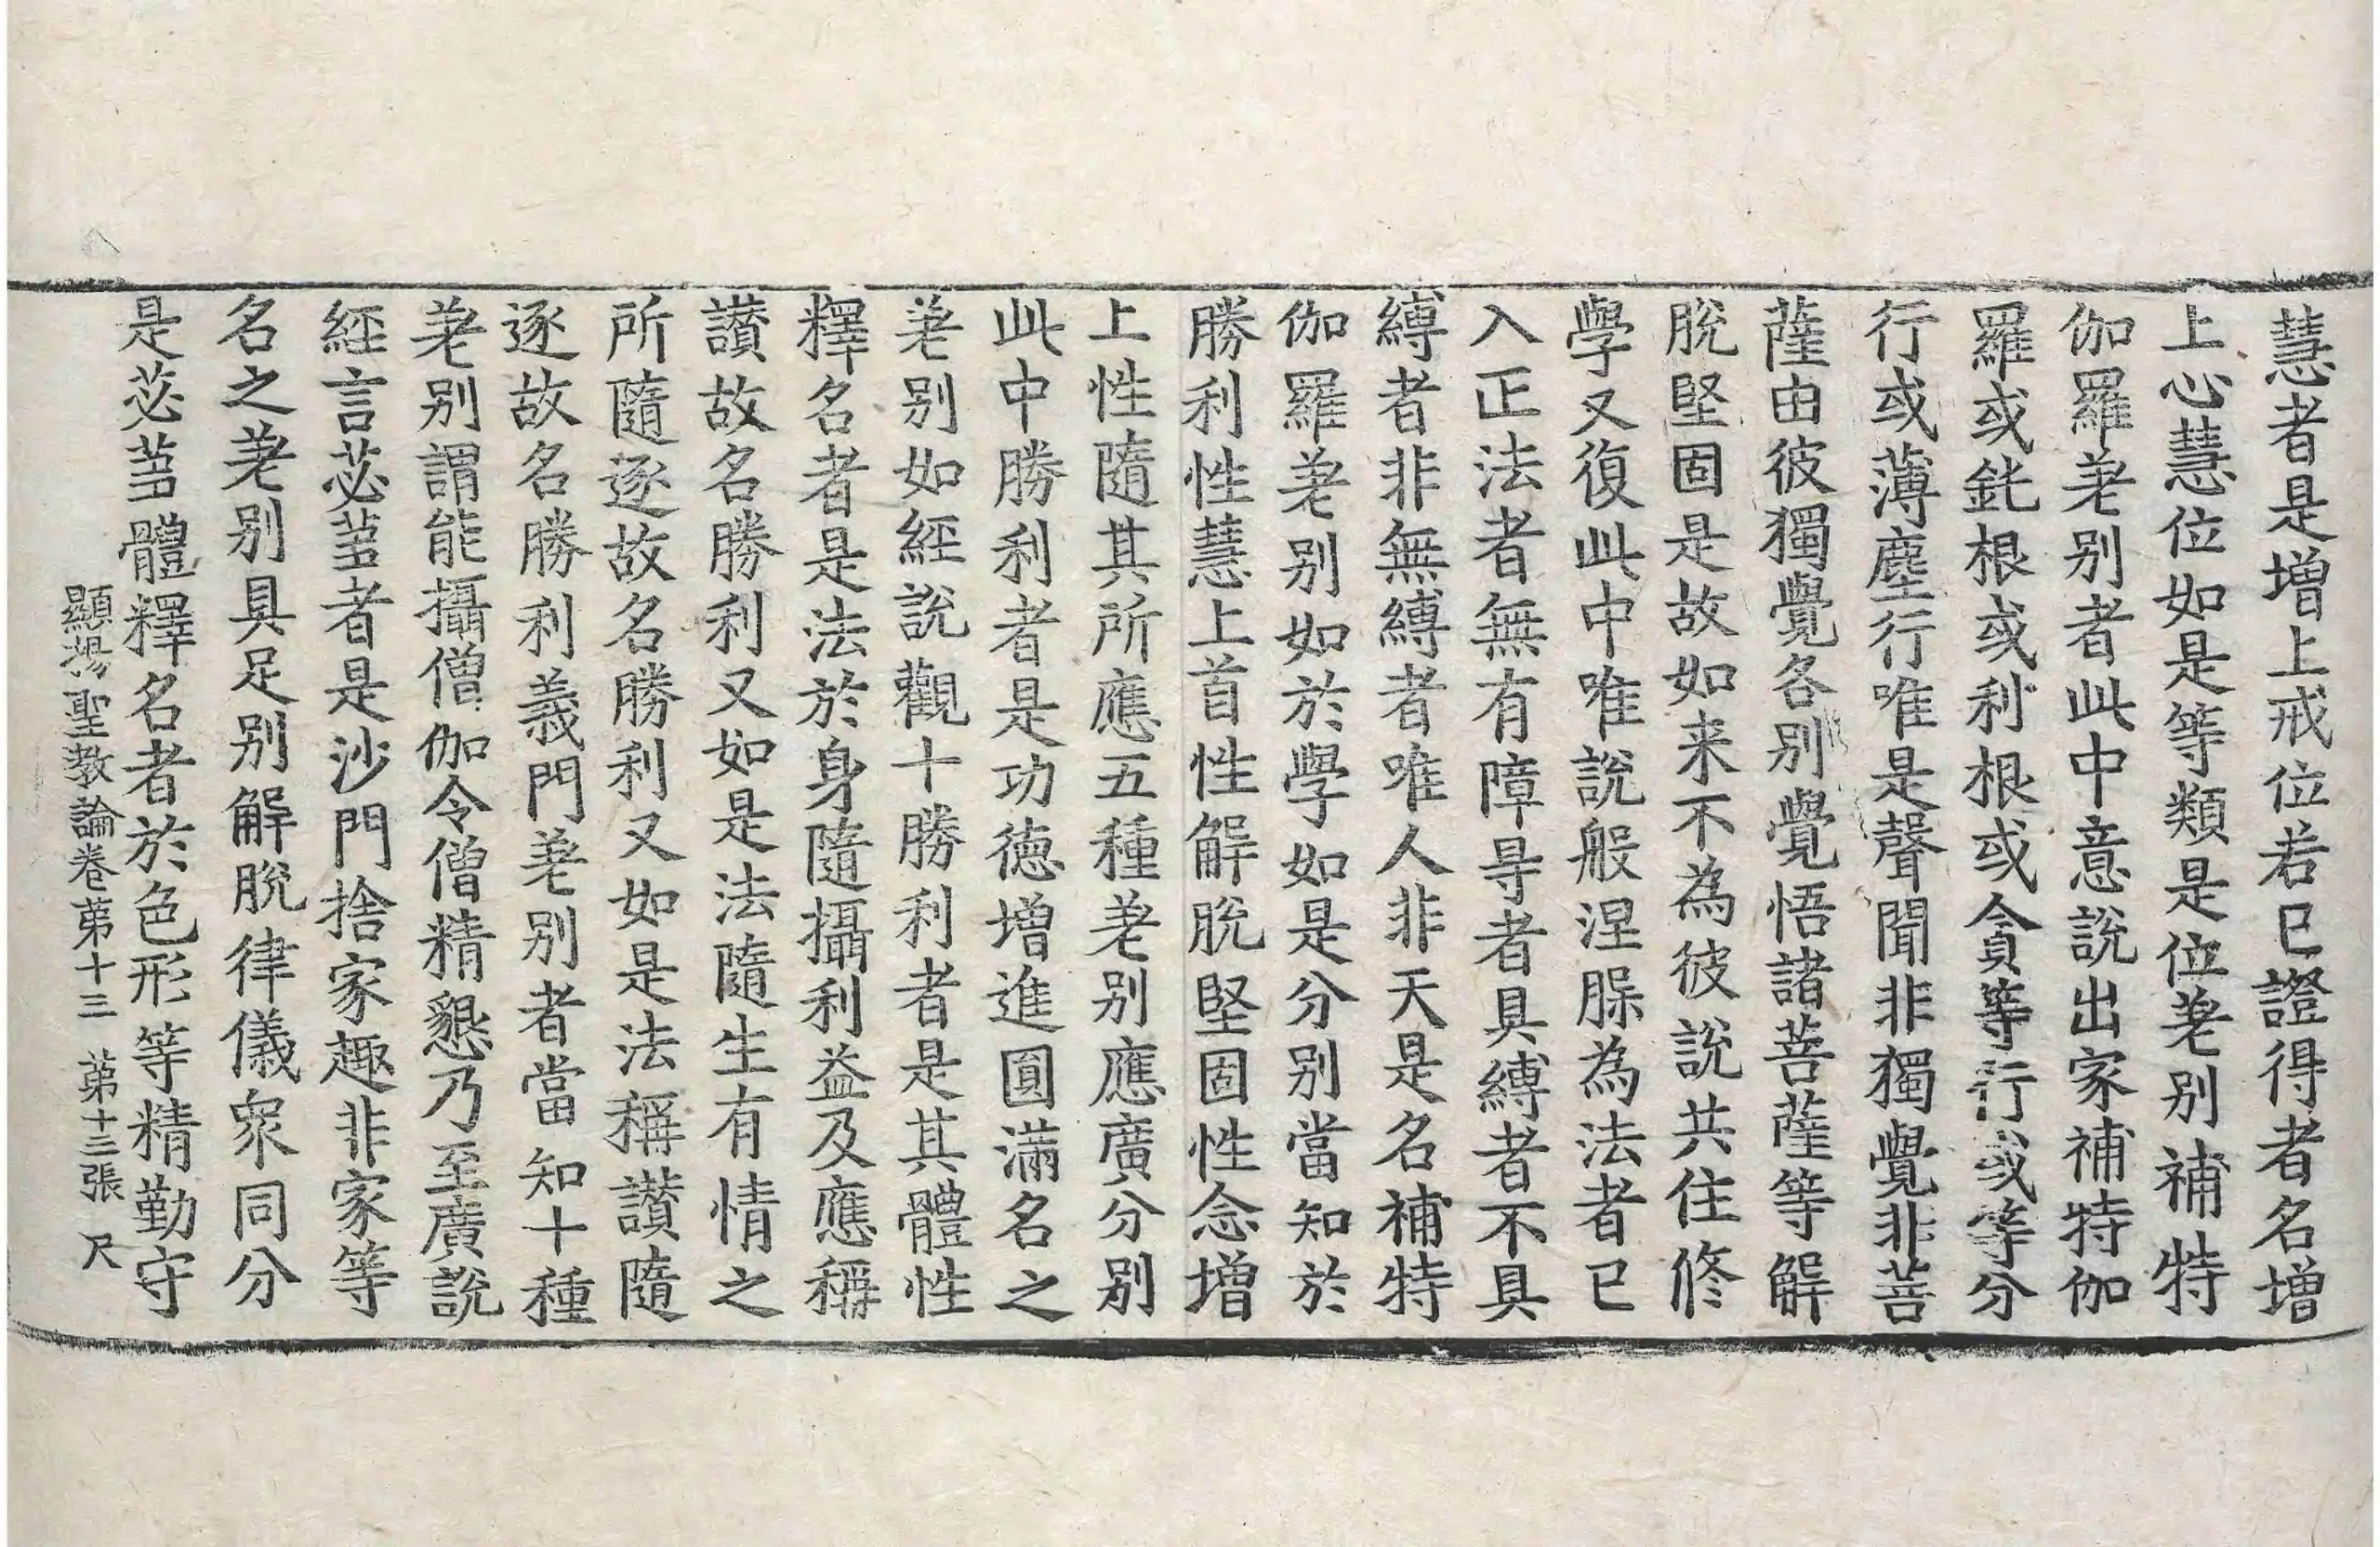 慧者是增上戒位若已證得者名增
上心慧位如是等類是位差别補特
伽羅差别者此中意說出家補特伽
羅或鈍根或利根或貪等行或等分
行或薄塵行唯是聲聞非獨覺非菩
薩由彼獨覺各别覺悟諸菩薩等解
脫堅固是故如来不為彼說共住修
學又復此中唯說般涅槃為法者已
入正法者無有障㝵者具縛者不具
縛者非無縛者唯人非天是名補特
伽羅差别如於學如是分别當知於
勝利性慧上首性解脫堅固性念增
上性隨其所應五種差别應廣分别
此中勝利者是功德增進圓滿名之
差别如經說觀十勝利者是其體性
釋名者是法於身隨攝利益及應稱
讃故名勝利又如是法隨生有情之
所隨逐故名勝利又如是法稱讃隨
逐故名勝利義門差别者當知十種
差别謂能攝僧伽令僧精懇乃至廣說
經言苾蒭者是沙門捨家趣非家等
名之差别具足别解脫律儀衆同分
是苾蒭體釋名者於色形等精勤守
顯揚聖教論卷苐十三　苐十三張　尺